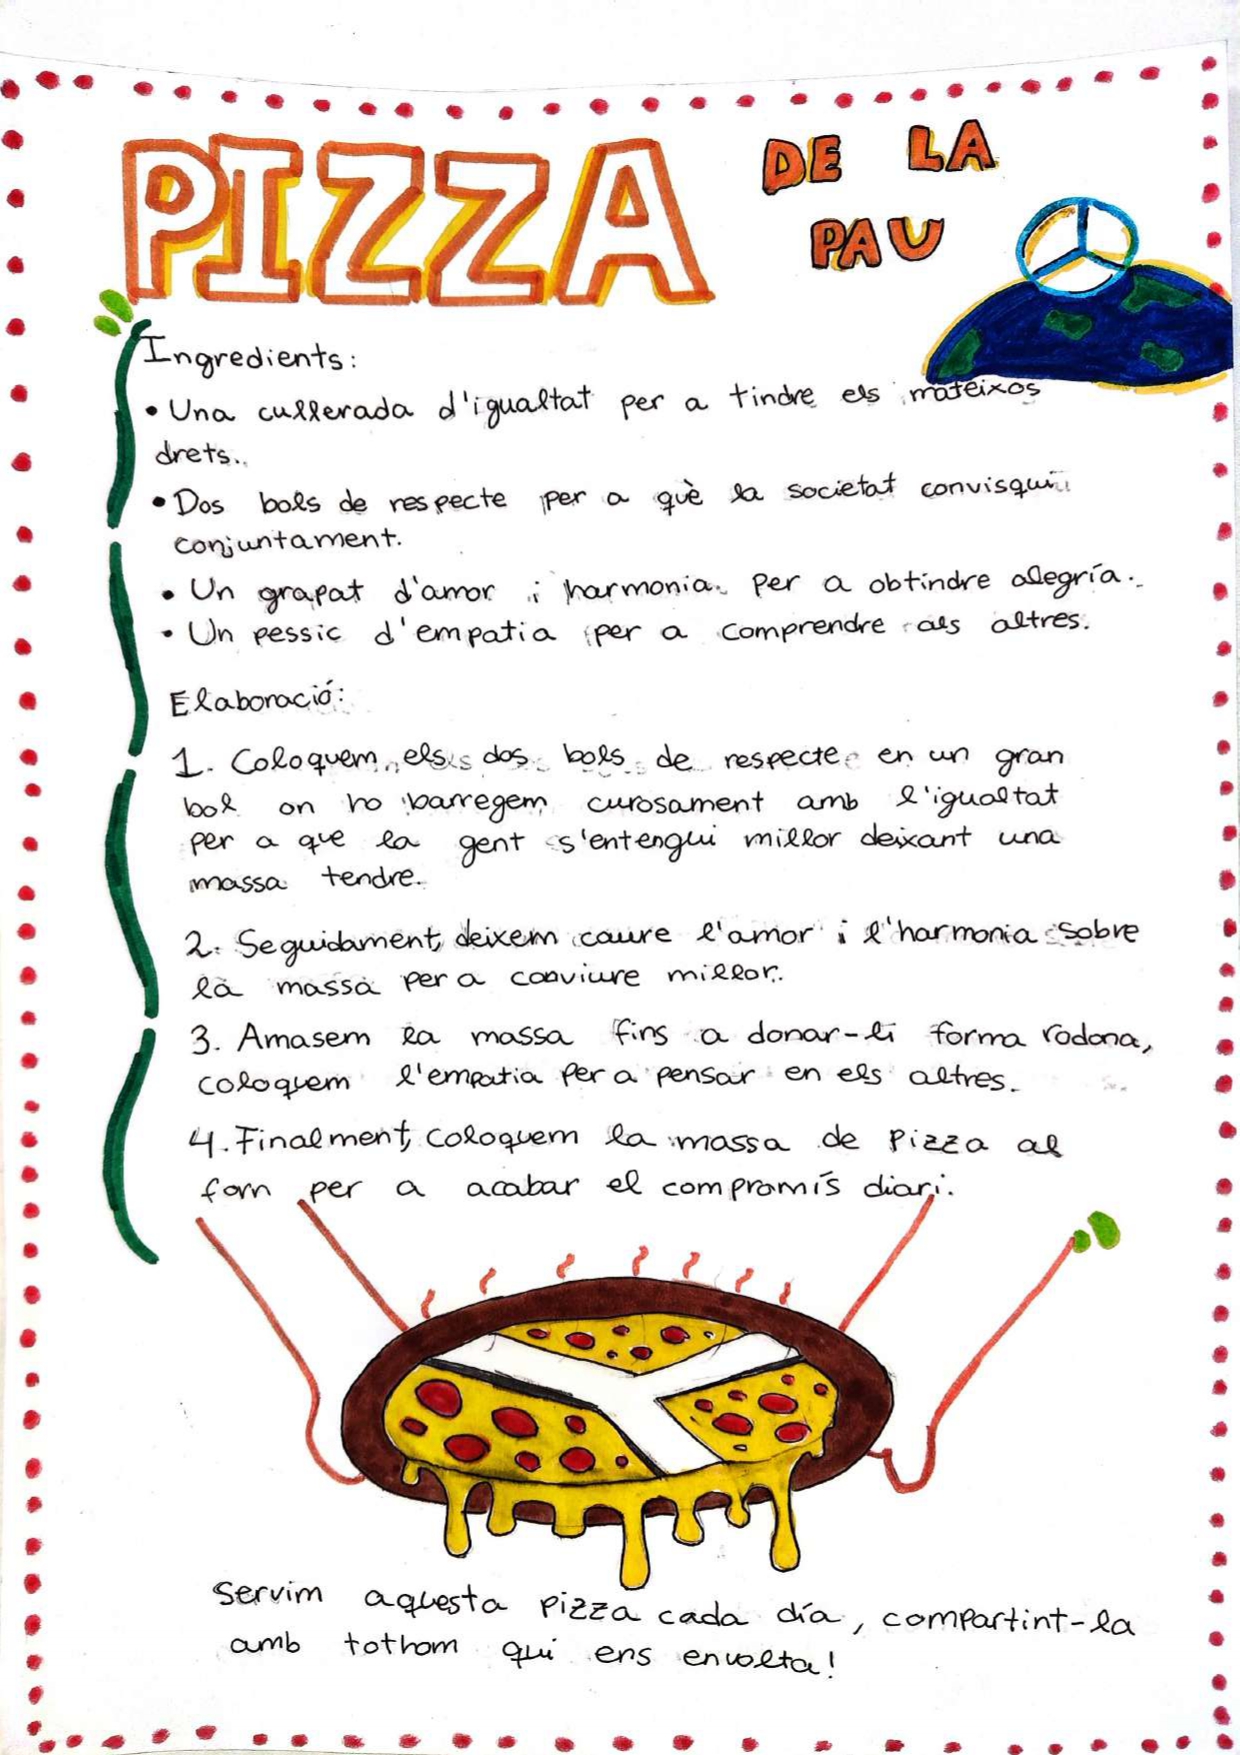 PIZZA DE LA
PAU
Ingredients:
• Una cullerada d'igualtat per a tindre els mateixos
drets.
• Dos bols de respecte per a què la societat convisqui
conjuntament.
• Un grapat d'amor i harmonia per a obtindre alegría.
• Un pessic d'empatia per a comprendre als altres.
Elaboració:
1. Coloquem els dos bols de respecte en un gran
bol on ho barregem curosament amb l'igualtat
per a que la gent s'entengui millor deixant una
massa tendre.
2. Seguidament, deixem caure l'amor i l'harmonia sobre
la massa per a conviure millor.
3. Amasem la massa fins a donar-li forma rodona,
coloquem l'empatia per a pensar en els altres.
4. Finalment, coloquem la massa de pizza al
forn per a acabar el compromís diari.
Servim aquesta pizza cada día, compartint-la
amb tothom qui ens envolta!